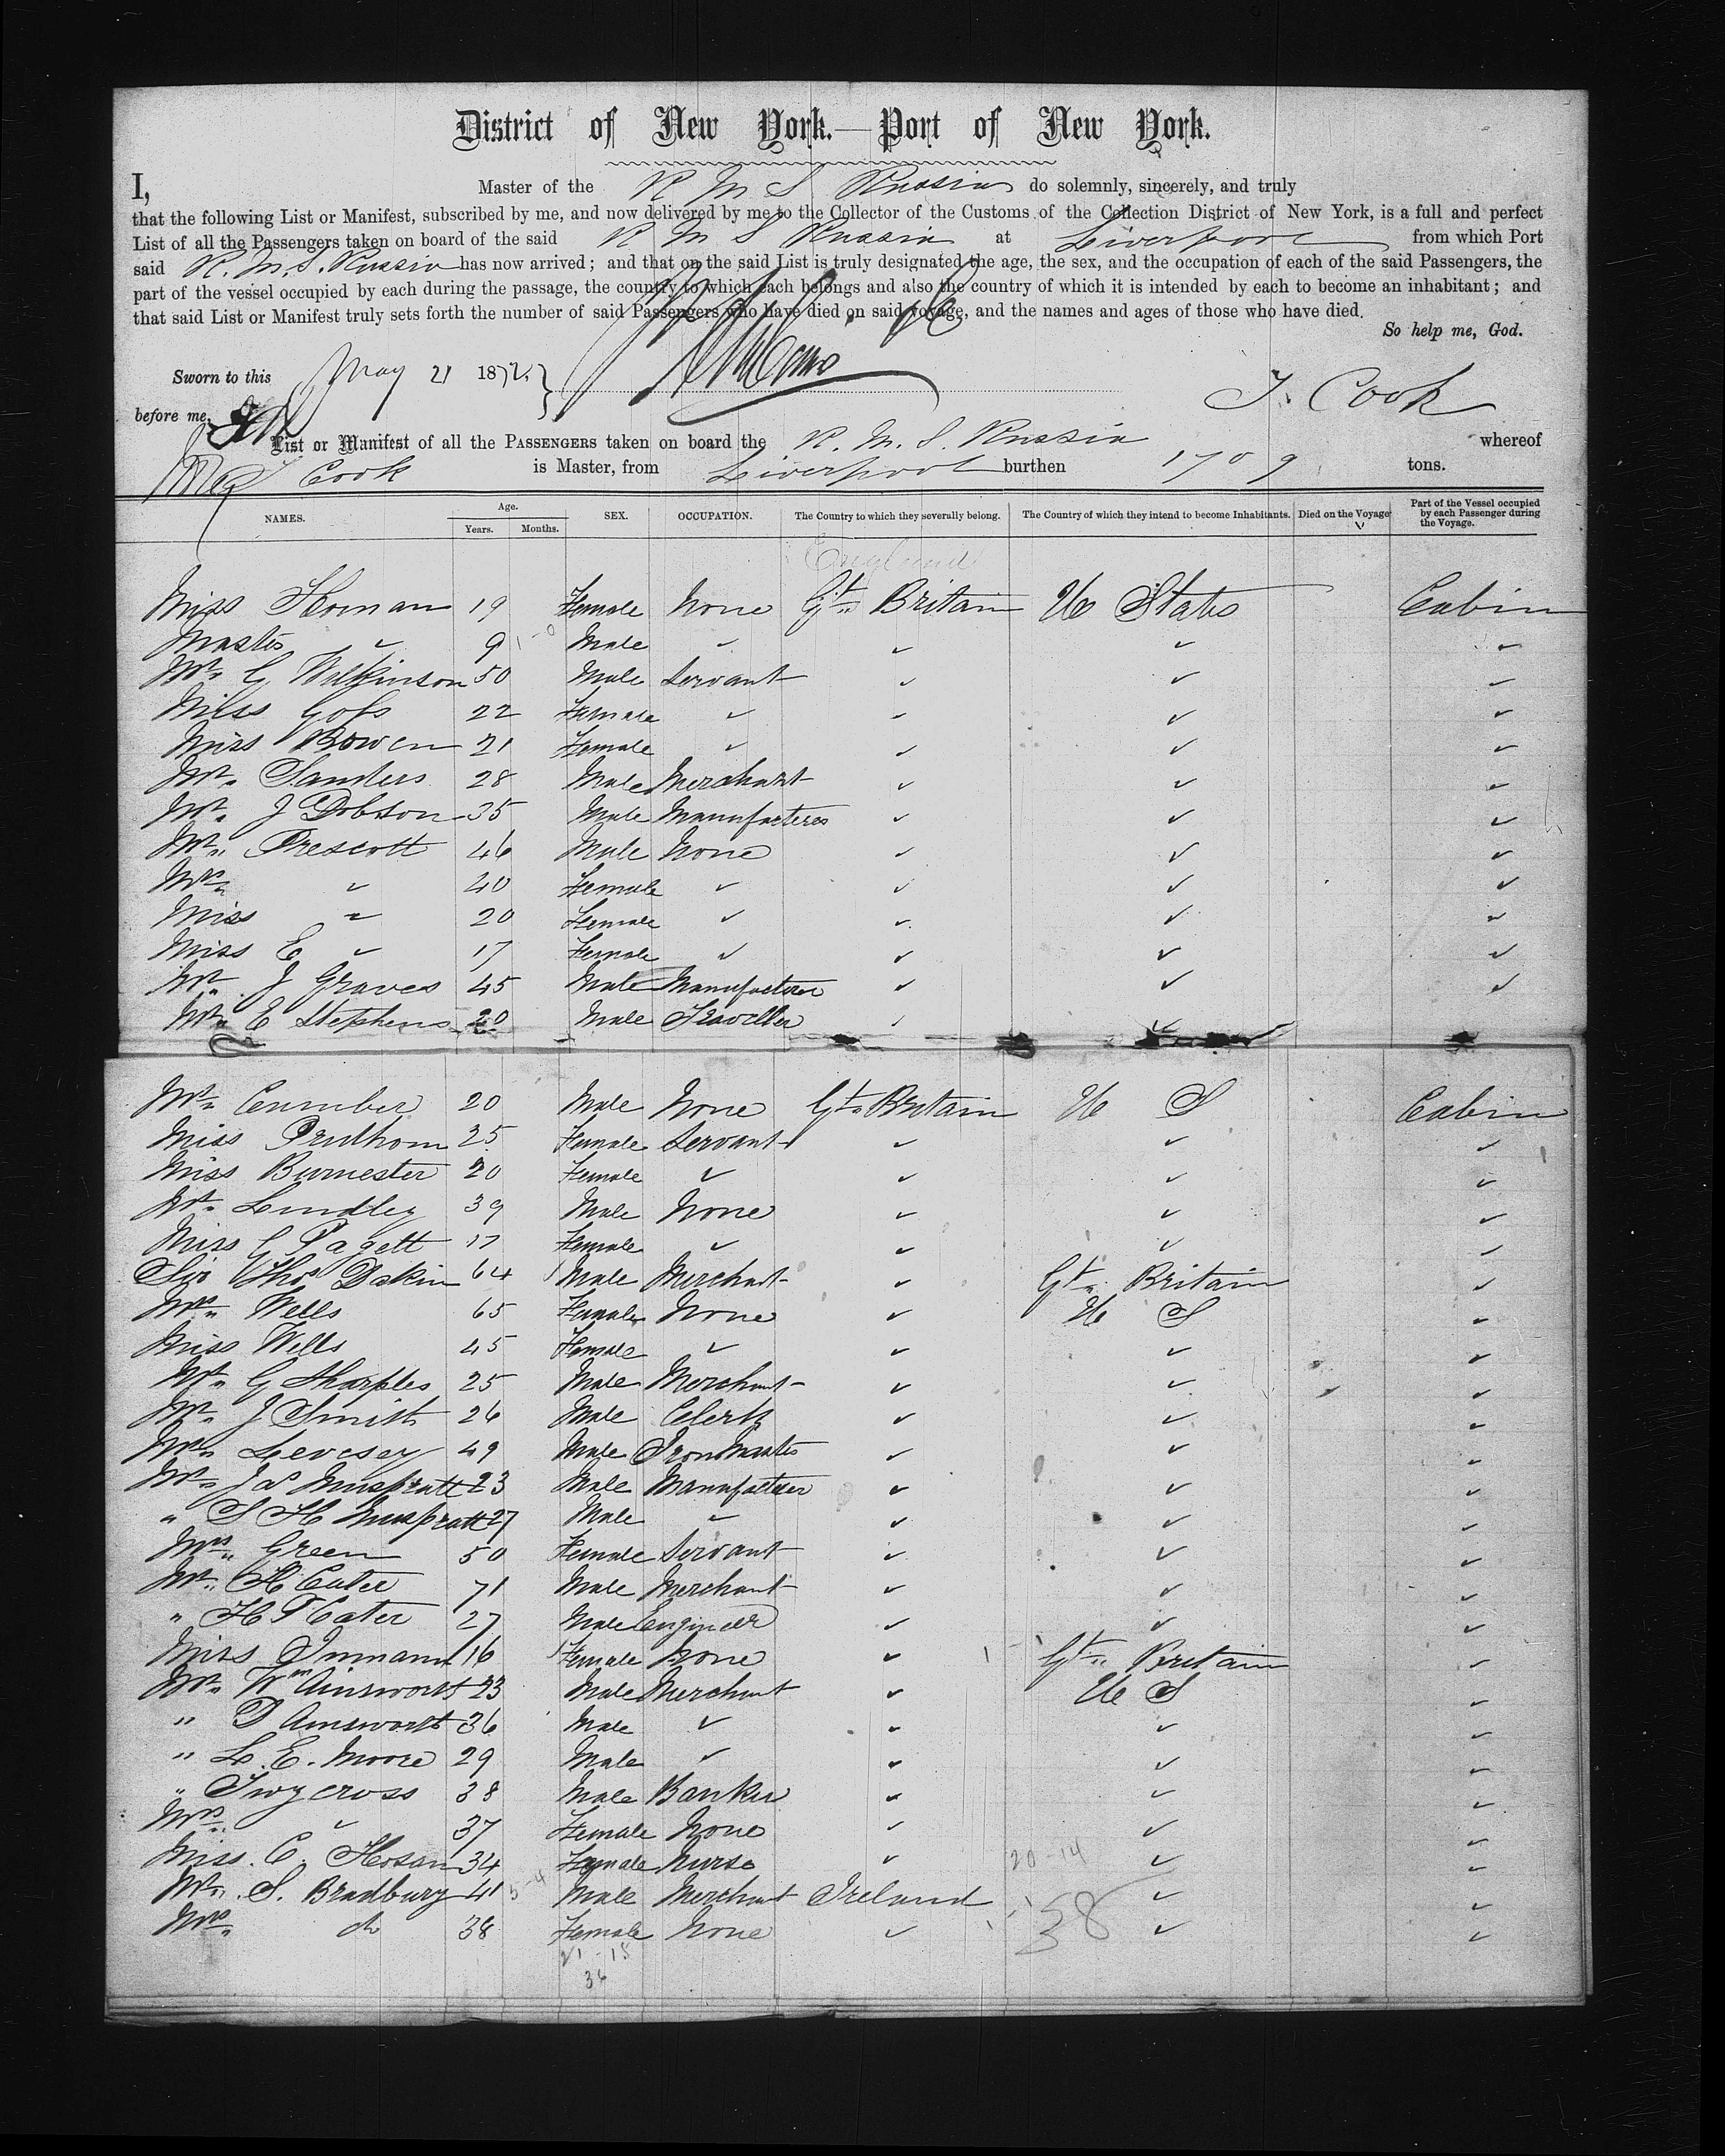 District of New York.—Port of New York.
I, Master of the R M S Russia do solemnly, sincerely, and truly
that the following List or Manifest, subscribed by me, and now delivered by me to the Collector of the Customs of the Collection District of New York, is a full and perfect
List of all the Passengers taken on board of the said R M S Russia at Liverpool from which Port
said R. M. S. Russia has now arrived; and that on the said List is truly designated the age, the sex, and the occupation of each of the said Passengers, the
part of the vessel occupied by each during the passage, the country to which each belongs and also the country of which it is intended by each to become an inhabitant; and
that said List or Manifest truly sets forth the number of said Passengers who have died on said voyage, and the names and ages of those who have died.
So help me, God.
Sworn to this May 21 1872
before me, T. Cook
List or Manifest of all the PASSENGERS taken on board the R. M. S. Russia whereof
T Cook is Master, from Liverpool burthen 1709 tons.
NAMES. Age. Years. Months. SEX. OCCUPATION. The Country to which they severally belong. The Country of which they intend to become Inhabitants. Died on the Voyage Part of the Vessel occupied by each Passenger during the Voyage.
England
Miss Homan 19 Female None Gt. Britain U States Cabin
Master ✓ 9 Male ✓ ✓ ✓ ✓
Mr. G Wilkinson 50 Male Servant ✓ ✓ ✓
Miss Goss 22 Female ✓ ✓ ✓ ✓
Miss Bowen 21 Female ✓ ✓ ✓ ✓
Mr. Sanders 28 Male Merchant ✓ ✓ ✓
Mr. J Dobson 35 Male Manufacterer ✓ ✓ ✓
Mr. Prescott 46 Male None ✓ ✓ ✓
Mrs. ✓ 40 Female ✓ ✓ ✓ ✓
Miss ✓ 20 Female ✓ ✓ ✓ ✓
Miss E ✓ 17 Female ✓ ✓ ✓ ✓
Mr. J Graves 45 Male Manufacterer ✓ ✓ ✓
Mr. E Stephens 20 Male Traveller ✓ ✓
Mr. 20 Male None Gt. Britain U S Cabin
Miss Prudhom 25 Female Servant ✓ ✓ ✓
Miss Burnester 20 Female ✓ ✓ ✓ ✓
Mr. Lindley 39 Male None ✓ ✓ ✓
Miss G Pagett 17 Female ✓ ✓ ✓ ✓
Sir Thos Dakin 64 Male Merchant ✓ Gt. Britain ✓
Mrs. Wells 65 Female None ✓ U S ✓
Miss Wells 45 Female ✓ ✓ ✓ ✓
Mr. G Sharples 25 Male Merchant ✓ ✓ ✓
Mr. J Smith 26 Male Clerk ✓ ✓ ✓
Mr. Levesey 49 Male Iron Master ✓ ✓ ✓
Mr. Jas Muspratt 23 Male Manufacterer ✓ ✓ ✓
" S H Muspratt 27 Male ✓ ✓ ✓ ✓
Mrs. Green 50 Female Servant ✓ ✓ ✓
Mr. H Cater 71 Male Merchant ✓ ✓ ✓
" H T Cater 27 Male Engineer ✓ ✓ ✓
Miss Inmann 16 Female None ✓ Gt. Britain ✓
Mr. Wm Ainsworth 23 Male Merchant ✓ U S ✓
" D Ainsworth 36 Male ✓ ✓ ✓ ✓
" L. E. Moore 29 Male ✓ ✓ ✓ ✓
" Twycross 38 Male Banker ✓ ✓ ✓
Mrs. ✓ 37 Female None ✓ ✓ ✓
Miss. C. Hosan 34 Female Nurse ✓ ✓ ✓
Mr. S. Bradbury 41 Male Merchant Ireland ✓ ✓
Mrs. do 38 Female None ✓ ✓ ✓
20-14
38
21-15
36